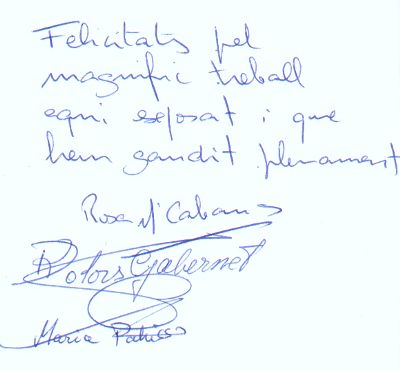 Felicitats pel
magnífic treball
aquí exposat i que
hem gaudit plenament
Rosa Mª Cabans
Dolors Gabernet
Maria